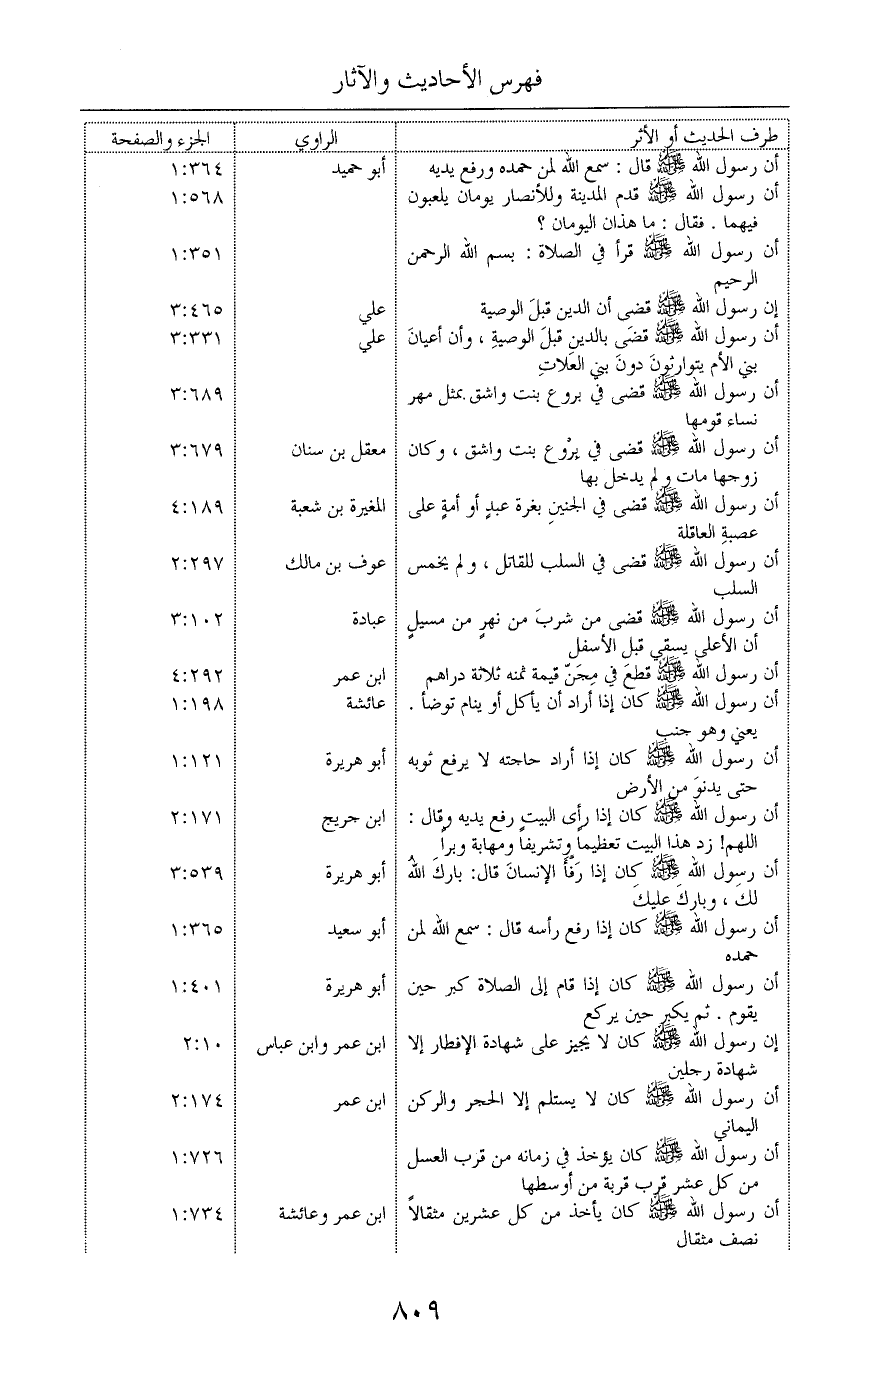 فهرس الأحاديث والآثار
طرف الحديث أو الأثر الراوي الجزء والصفحة
أن رسول الله ﷺ قال : سمع الله لمن حمده ورفع يديه أبو حميد ١:٣٦٤
أن رسول الله ﷺ قدم المدينة وللأنصار يومان يلعبون ١:٥٦٨
فيهما . فقال : ما هذان اليومان ؟
أن رسول الله ﷺ قرأ في الصلاة : بسم الله الرحمن ١:٣٥١
الرحيم
إن رسول الله ﷺ قضى أن الدين قبلَ الوصية علي ٣:٤٦٥
أن رسول الله ﷺ قضَى بالدينِ قبلَ الوصيةِ ، وأن أعيانَ علي ٣:٣٣١
بني الأم يتوارثونَ دونَ بني العَلاتِ
أن رسول الله ﷺ قضى في بروع بنت واشق بمثل مهر ٣:٦٨٩
نساء قومها
أن رسول الله ﷺ قضى في بِرْوع بنت واشق ، وكان معقل بن سنان ٣:٦٧٩
زوجها مات ولم يدخل بها
أن رسول الله ﷺ قضى في الجنينِ بغرة عبدٍ أو أمةٍ على المغيرة بن شعبة ٤:١٨٩
عصبةِ العاقلة
أن رسول الله ﷺ قضى في السلب للقاتل ، ولم يخمس عوف بن مالك ٢:٢٩٧
السلب
أن رسول الله ﷺ قضى من شربَ من نهرٍ من مسيلٍ عبادة ٣:١٠٢
أن الأعلى يسقي قبل الأسفل
أن رسول الله ﷺ قطعَ في مِجَنّ قيمة ثمنه ثلاثة دراهم ابن عمر ٤:٢٩٢
أن رسول الله ﷺ كان إذا أراد أن يأكل أو ينام توضأ . عائشة ١:١٩٨
يعني وهو جنب
أن رسول الله ﷺ كان إذا أراد حاجته لا يرفع ثوبه أبو هريرة ١:١٢١
حتى يدنوَ من الأرض
أن رسول الله ﷺ كان إذا رأى البيت رفع يديه وقال : ابن جريج ٢:١٧١
اللهم! زد هذا البيت تعظيماً وتشريفاً ومهابة وبراً
أن رسول الله ﷺ كان إذا رَفَّأَ الإنسانَ قال: باركَ اللهُ أبو هريرة ٣:٥٣٩
لكَ ، وباركَ عليكَ
أن رسول الله ﷺ كان إذا رفع رأسه قال : سمع الله لمن أبو سعيد ١:٣٦٥
حمده
أن رسول الله ﷺ كان إذا قام إلى الصلاة كبر حين أبو هريرة ١:٤٠١
يقوم . ثم يكبر حين يركع
إن رسول الله ﷺ كان لا يجيز على شهادة الإفطار إلا ابن عمر وابن عباس ٢:١٠
شهادة رجلين
أن رسول الله ﷺ كان لا يستلم إلا الحجر والركن ابن عمر ٢:١٧٤
اليماني
أن رسول الله ﷺ كان يؤخذ في زمانه من قرب العسل ١:٧٢٦
من كل عشر قرب قربة من أوسطها
أن رسول الله ﷺ كان يأخذ من كل عشرين مثقالاً ابن عمر وعائشة ١:٧٣٤
نصف مثقال
٨٠٩